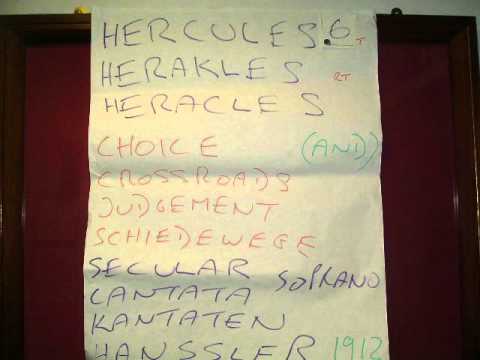 HERCULES .6 T
HERAKLES RT
HERACLES
CHOICE (AND))
CROSSROADS
JUDGEMENT
SCHIEDEWEGE
SECULAR SOPRANO
CANTATA
KANTATEN
HANSSLER 1912